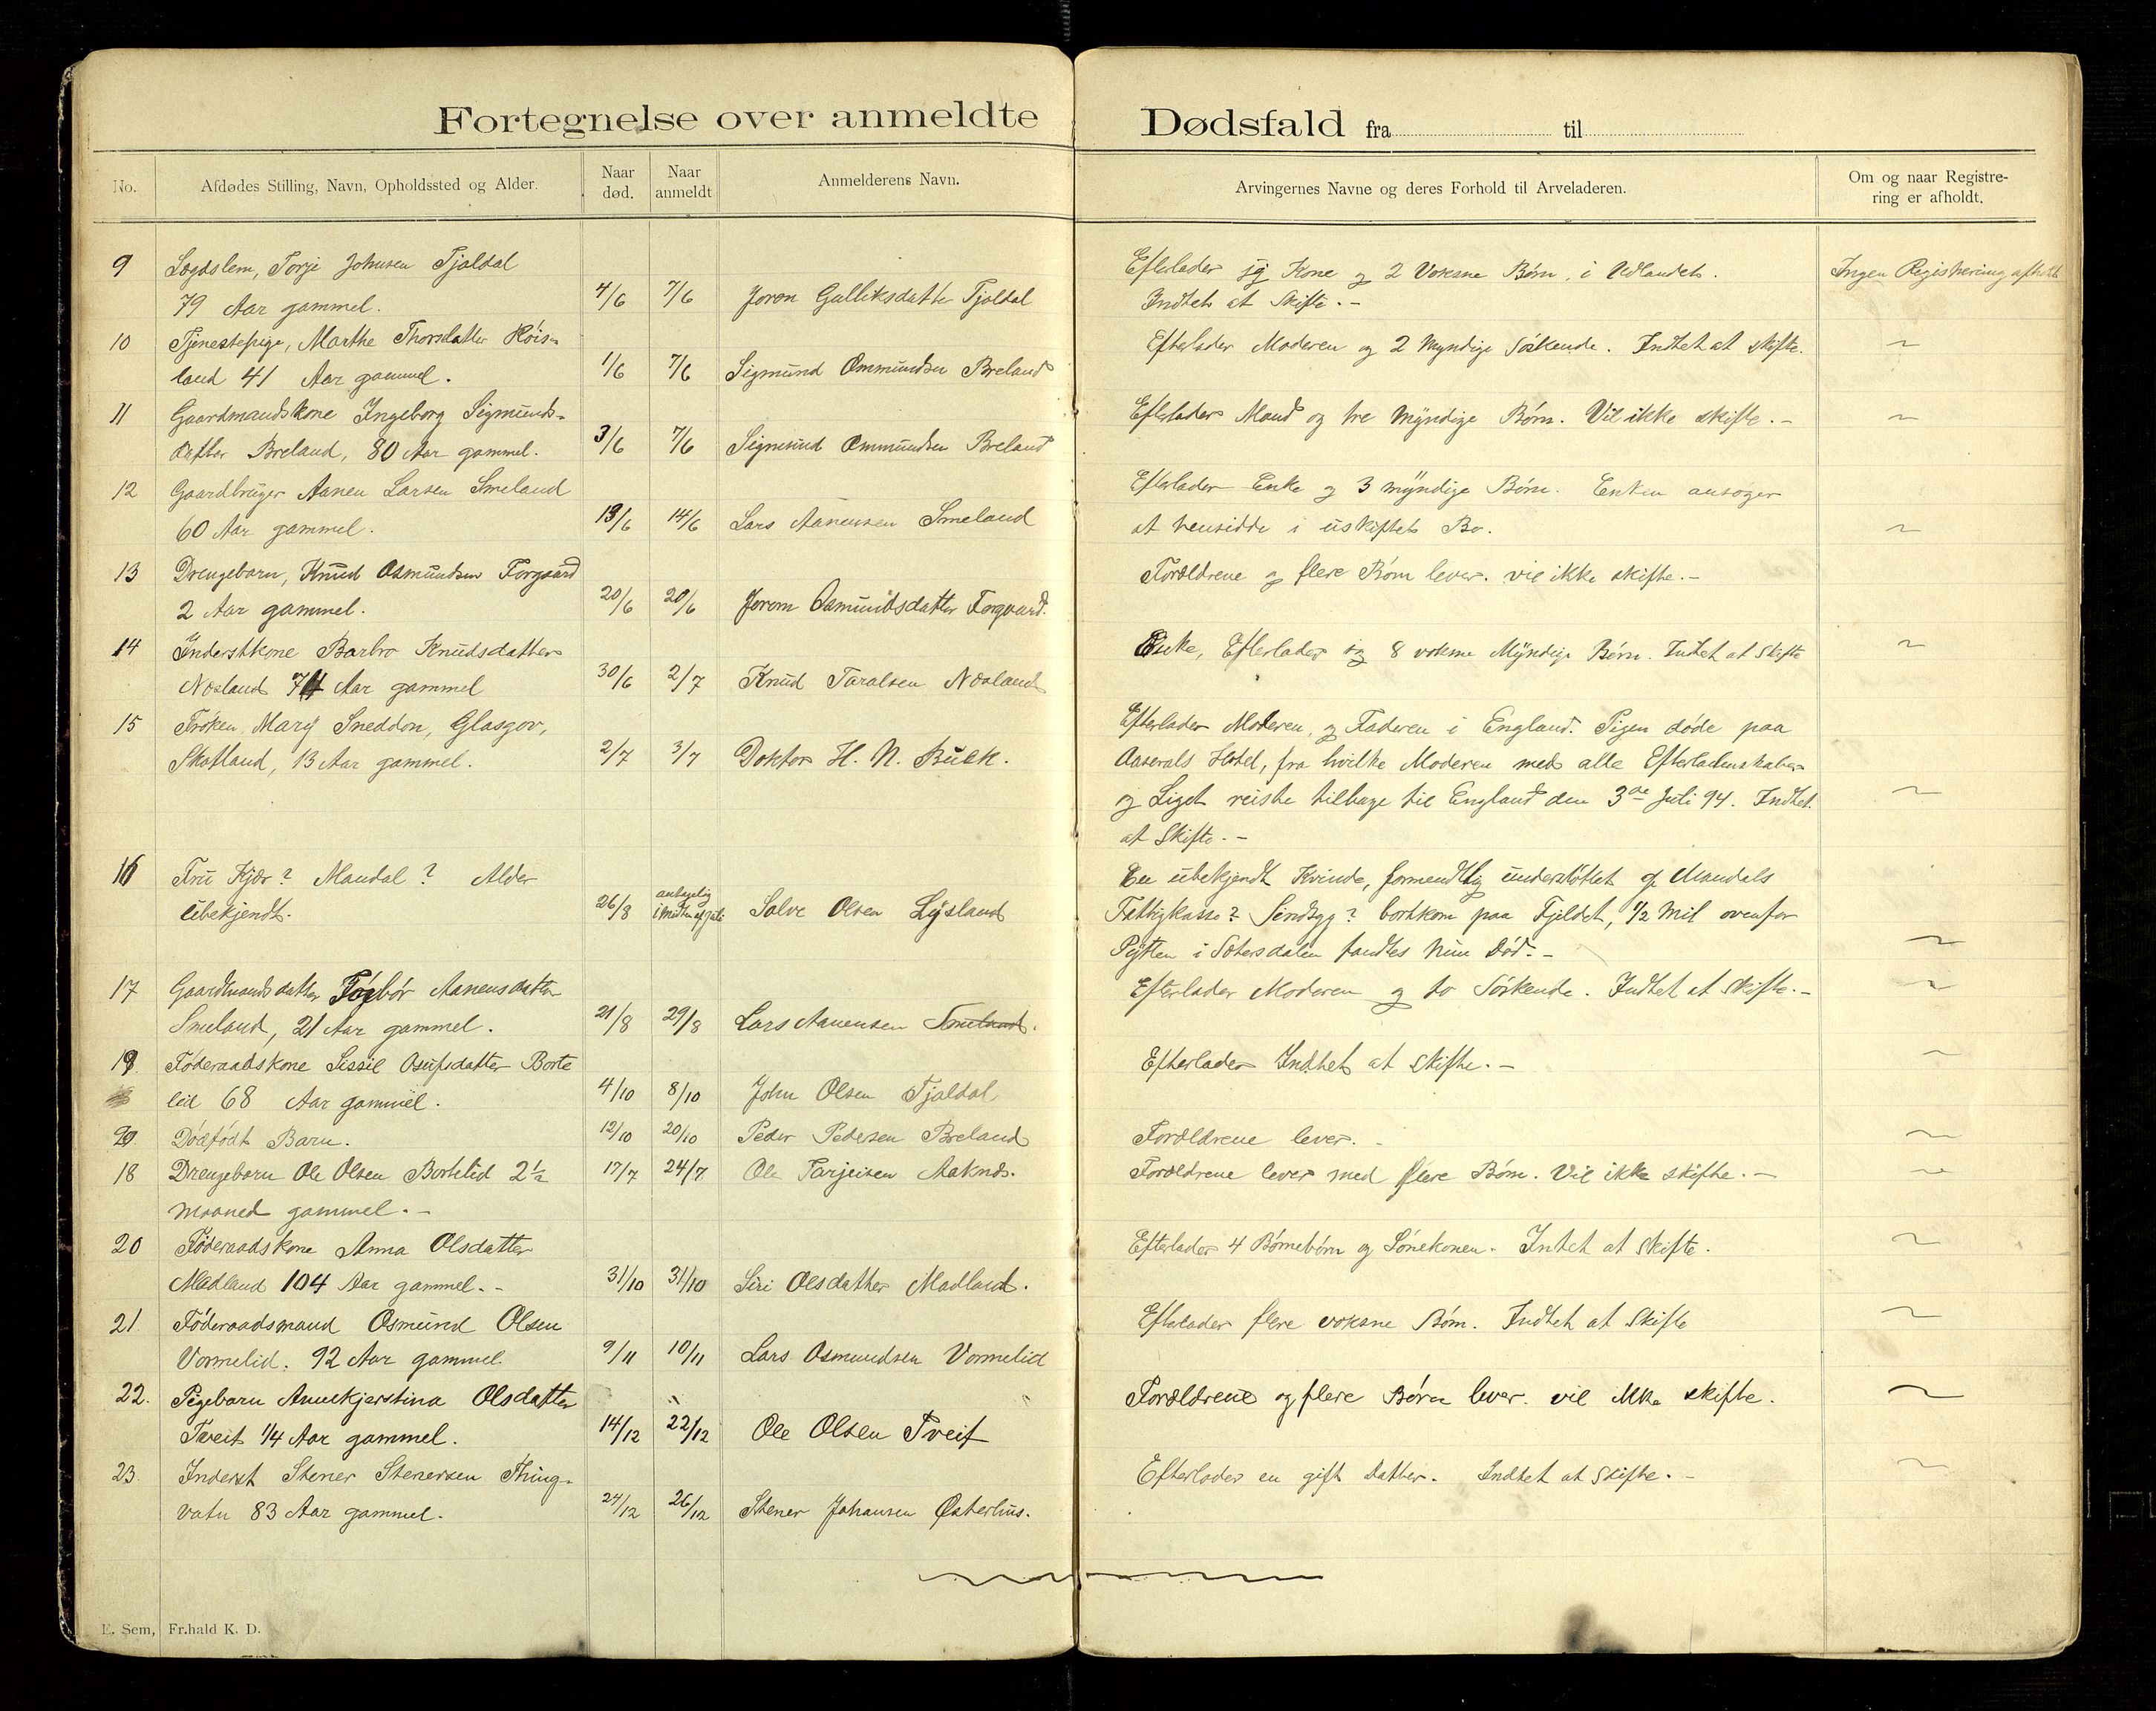 Fortegnelse over anmeldte Dødsfald fra til
No. Afdødes Stilling, Navn, Opholdssted og Alder. Naar død. Naar anmeldt Anmelderens Navn. Arvingernes Navne og deres Forhold til Arveladeren. Om og naar Registrering er afholdt.
9 Lægdslem, Torje Johnsen Tjaldal Efterlader sig Kone og 2 Voksne Børn, i Udlandet. Ingen Registrering afholdt
79 Aar gammel. 4/6 7/6 Joron Gulliksdatter Tjaldal Indtet at Skifte. -
10 Tjenestepige, Marthe Thorsdatter Røis- Efterlader Moderen og 2 Myndige Søskende. Indtet at skifte. ~
land 41 Aar gammel. 1/6 7/6 Sigmund Ommundsen Breland
11 Gaardmandskone Ingeborg Sigmunds- Efterlader Mand og tre Myndige Børn. Vil ikke skifte. - ~
datter Breland, 80 Aar gammel. 3/6 7/6 Sigmund Ommundsen Breland
12 Gaardbruger Aanen Larsen Smeland Efterlader Enke og 3 myndige Børn. Enken ansøger
60 Aar gammel. 13/6 14/6 Lars Aanensen Smeland at hensidde i uskiftet Bo. ~
13 Drengebarn, Knud Osmundsen Forgaard Forældrene og flere Børn lever. vil ikke skifte. -
2 Aar gammel. 20/6 20/6 Joron Osmundsdatter Forgaard.
14 Inderstkone Barbro Knudsdatter Enke, Efterlader sig 8 voksne Myndige Børn. Indtet at Skifte ~
Næsland 74 Aar gammel 30/6 2/7 Knud Taralsen Næsland
15 Frøken, Mary Sneddon, Glasgov, Efterlader Moderen, og Faderen i England. Pigen døde paa
Skotland, 13 Aar gammel. 2/7 3/7 Doktor H. N. Buck. Aaserals Hotel, fra hvilke Moderen med alle Efterladenskaber
og Liget reiste tilbage til England den 3de Juli 94. Indtet ~
at Skifte. -
16 Fru Kjær? Mandal? Alder En ubekjendt Kvinde, formendtlig understøttet af Mandals
Ubekjendt. 26/8 i midten af Juli Salve Olsen Lysland Fattigkasse? Sindsyg? bortkom paa Fjeldet, 1/2 Mil ovenfor
Pytten i Sætersdalen fandtes hun Død. - ~
17 Gaardmandsdatter Torbør Aanensdatter Efterlader Moderen og to Søskende. Indtet at Skifte. - ~
Smeland, 21 Aar gammel. 21/8 29/8 Lars Aanensen Smeland.
19 Føderaadskone Sissil Osufsdatter Borte Efterlader Indtet at Skifte. - ~
lid 68 Aar gammel. 4/10 8/10 John Olsen Tjaldal
20 Dødfødt Barn. 12/10 20/10 Peder Pedersen Breland Forældrene lever. - ~
18 Drengebarn Ole Olsen Bortelid 2 1/2 17/7 24/7 Ole Tarjeisen Aaknes. Forældrene lever med flere Børn. Vil ikke skifte. - ~
Maaned gammel. -
20 Føderaadskone Anna Olsdatter Efterlader 4 Børnebørn og Sønekonen. Intet at Skifte. ~
Madland 104 Aar gammel. - 31/10 31/10 Siri Olsdatter Madland.
21 Føderaadsmand Osmund Olsen Efterlader flere voksne Børn. Indtet at Skifte ~
Vormelid. 92 Aar gammel. 9/11 10/11 Lars Osmundsen Vormelid
22. Pigebarn Annekjerstina Olsdatter Forældrene og flere Børn lever. vil ikke skifte. ~
Tveit 1/4 Aar gammel. 14/12 22/12 Ole Olsen Tveit
23. Inderst Stener Stenersen Thing- Efterlader en gift Datter. Indtet at Skifte. - ~
vatn 83 Aar gammel. 24/12 26/12 Stener Johansen Østerhus.
E. Sem, Fr.hald K. D.